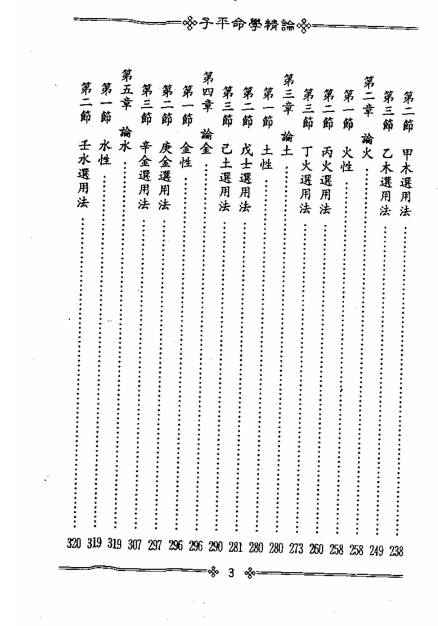 子平命學精論
第二節 甲木選用法 238
第三節 乙木選用法 249
第二章 論火 258
第一節 火性 258
第二節 丙火選用法 260
第三節 丁火選用法 273
第三章 論土 280
第一節 土性 280
第二節 戊土選用法 281
第三節 己土選用法 290
第四章 論金 296
第一節 金性 296
第二節 庚金選用法 297
第三節 辛金選用法 307
第五章 論水 319
第一節 水性 319
第二節 壬水選用法 320
3